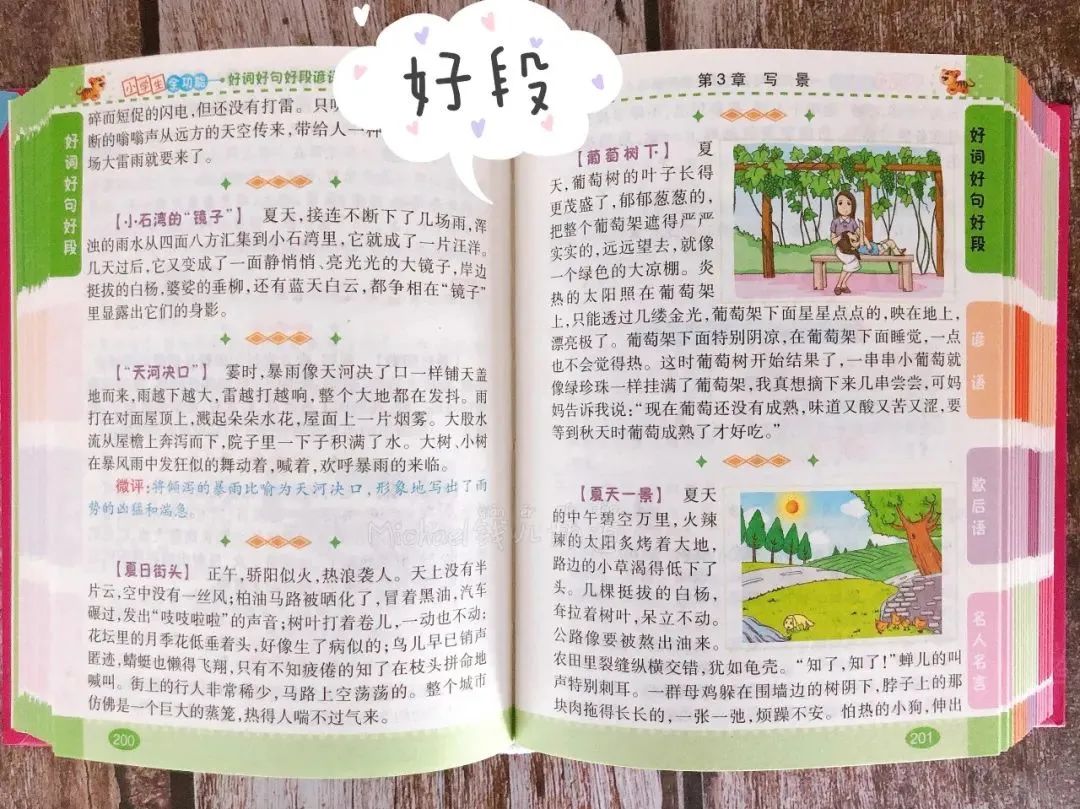 好段
小学生全功能·好词好句好段谚语
好词好句好段
碎而短促的闪电,但还没有打雷。只
断的嗡嗡声从远方的天空传来,带给人一种
场大雷雨就要来了。
【小石湾的“镜子”】 夏天,接连不断下了几场雨,浑
浊的雨水从四面八方汇集到小石湾里,它就成了一片汪洋。
几天过后,它又变成了一面静悄悄、亮光光的大镜子,岸边
挺拔的白杨,婆娑的垂柳,还有蓝天白云,都争相在“镜子”
里显露出它们的身影。
【“天河决口”】 霎时,暴雨像天河决了口一样铺天盖
地而来,雨越下越大,雷越打越响,整个大地都在发抖。雨
打在对面屋顶上,溅起朵朵水花,屋面上一片烟雾。大股水
流从屋檐上奔泻而下,院子里一下子积满了水。大树、小树
在暴风雨中发狂似的舞动着,喊着,欢呼暴雨的来临。
微评:将倾泻的暴雨比喻为天河决口,形象地写出了雨
势的凶猛和湍急。
【夏日街头】 正午,骄阳似火,热浪袭人。天上没有半
片云,空中没有一丝风;柏油马路被晒化了,冒着黑油,汽车
碾过,发出“吱吱啦啦”的声音;树叶打着卷儿,一动也不动;
花坛里的月季花低垂着头,好像生了病似的;鸟儿早已销声
匿迹,蜻蜓也懒得飞翔,只有不知疲倦的知了在枝头拼命地
喊叫。街上的行人非常稀少,马路上空荡荡的。整个城市
仿佛是一个巨大的蒸笼,热得人喘不过气来。
200
第3章 写 景
【葡萄树下】 夏
天,葡萄树的叶子长得
更茂盛了,郁郁葱葱的,
把整个葡萄架遮得严严
实实的,远远望去,就像
一个绿色的大凉棚。炎
热的太阳照在葡萄架
上,只能透过几缕金光,葡萄架下面星星点点的,映在地上,
漂亮极了。葡萄架下面特别阴凉,在葡萄架下面睡觉,一点
也不会觉得热。这时葡萄树开始结果了,一串串小葡萄就
像绿珍珠一样挂满了葡萄架,我真想摘下来几串尝尝,可妈
妈告诉我说:“现在葡萄还没有成熟,味道又酸又苦又涩,要
等到秋天时葡萄成熟了才好吃。”
【夏天一景】 夏天
的中午碧空万里,火辣
辣的太阳炙烤着大地,
路边的小草渴得低下了
头。几棵挺拔的白杨,
耷拉着树叶,呆立不动。
公路像要被熬出油来。
农田里裂缝纵横交错,犹如龟壳。“知了,知了!”蝉儿的叫
声特别刺耳。一群母鸡躲在围墙边的树阴下,脖子上的那
块肉拖得长长的,一张一弛,烦躁不安。怕热的小狗,伸出
201
好词好句好段
谚语
歇后语
名人名言
Michael钱儿